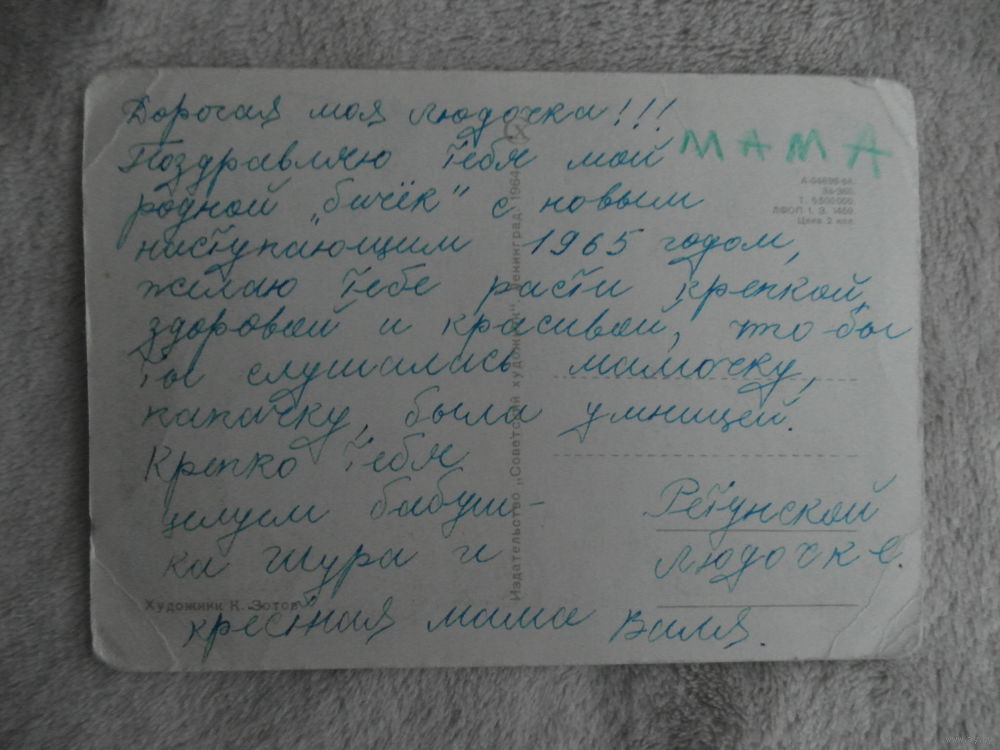 Дорогая моя Людочка!!!
МАМА
Поздравляю тебя мой
родной „бичёк" с новым
наступающим 1965 годом,
желаю тебе расти крепкой,
здоровой и красивой, что-бы
ты слушалась мамочку,
папачку, была умницей.
Крепко тебя
целуем бабуш-
ка Шура и
крёстная мама Валя.
Ретунской
Людочке.
Художник К. Зотов
Издательство „Советский художник". Ленинград. 1964
Цена 2 коп.